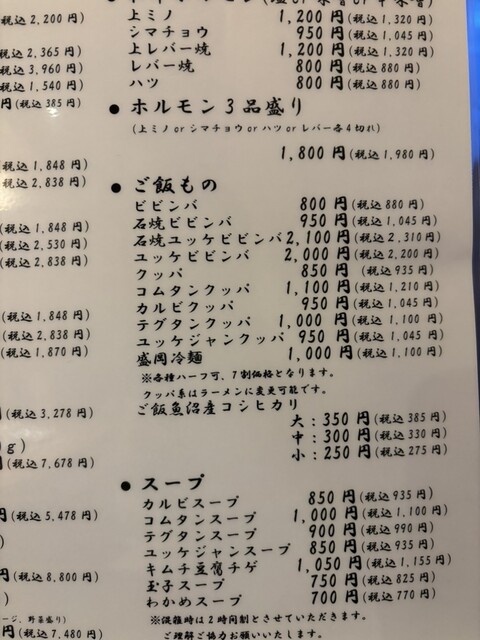 上ミノ 1,200 円(税込 1,320)
シマチョウ 950 円(税込 1,045)
上レバー焼 1,200 円(税込 1,320)
レバー焼 800 円(税込 880)
ハツ 800 円(税込 880)
● ホルモン3品盛り
(上ミノorシマチョウorハツorレバー各4切れ)
1,800 円(税込 1,980)
● ご飯もの
ビビンバ 800 円(税込 880)
石焼ビビンバ 950 円(税込 1,045)
石焼ユッケビビンバ 2,100 円(税込 2,310)
ユッケビビンバ 2,000 円(税込 2,200)
クッパ 850 円 (税込 935)
コムタンクッパ 1,100 円(税込 1,210)
カルビクッパ 950 円(税込 1,045)
テグタンクッパ 1,000 円(税込 1,100)
ユッケジャンクッパ 950 円(税込 1,045)
盛岡冷麺 1,000 円(税込 1,100)
※各種ハーフ可、7割価格となります。
クッパ系はラーメンに変更可能です。
ご飯魚沼産コシヒカリ
大:350 円(税込 385)
中:300 円(税込 330)
小:250 円(税込 275)
● スープ
カルビスープ 850 円(税込 935)
コムタンスープ 1,000 円(税込 1,100)
テグタンスープ 900 円(税込 990)
ユッケジャンスープ 850 円(税込 935)
キムチ豆腐チゲ 1,050 円(税込 1,155)
玉子スープ 750 円(税込 825)
わかめスープ 700 円(税込 770)
※混雑時は2時間制とさせていただきます。
ご理解ご協力お願いいたします。
税込 2,200 円)
(税込 2,365 円)
(税込 3,960 円)
(税込 1,540 円)
円(税込 385 円)
税込 1,848 円)
税込 2,838 円)
(税込 1,848 円)
(税込 2,530 円)
(税込 2,838 円)
(税込 1,848 円)
(税込 2,838 円)
(税込 1,870 円)
円(税込 3,278 円)
g)
円(税込 7,678 円)
円(税込 5,478 円)
)
円(税込 8,800 円)
)
ージ、野菜盛り)
円(税込 7,480 円)